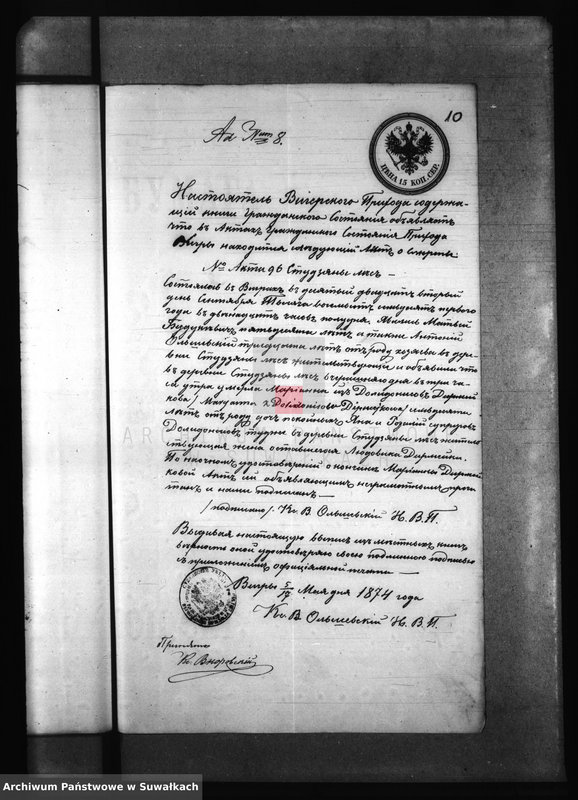 10
Ad Num 8.
ЦѢНА 15 КОП. СЕР.
Настоятель Вигерского Прихода содержа-
щій книги Гражданского Состоянія объявляетъ
что въ Актахъ Гражданского Состоянія Прихода
Вигры находится слѣдующій Актъ о смерти
№ Акта 96 Студзяны лѣсъ
Состоялось въ Виграхъ въ десятый двадцать второй
день Сентября тысяча восемьсотъ семьдесятъ перваго
года въ двенадцать часовъ полудня. Явились Матвѣй
лѣтъ и также Антоній
лѣтъ отъ роду хозяева въ дерев-
ни Студзяны лѣсъ жительствующіе и объявили что
въ деревни Студзяны лѣсъ вчерашняго дня въ три ча-
са утра умерла Маріанна изъ Долидонисовъ
Maryanna z Dolidonisow
лѣтъ отъ роду дочь покойныхъ Яна и супруговъ
Долидонисовъ въ деревни Студзяны лѣсъ житель-
ствующая жена оставшегося Людвика
По наочномъ удостовѣреніи о кончинѣ Маріанны
ковой Актъ сей объявляющимъ неграмотнымъ прочи-
танъ и нами подписанъ.—
/подписано/. Кс. В. Ольшевскій Н. В. П.
Выдавая настоящую выпись изъ мѣстныхъ книгъ
вѣрность оной удостовѣряю своею подписью
съ приложеніемъ официальной печати—
Вигры 5/17 Мая дня 1874 года
Кс. В. Ольшевскій Н. В. П.
Кс.
Archiwum Państwowe w Suwałkach